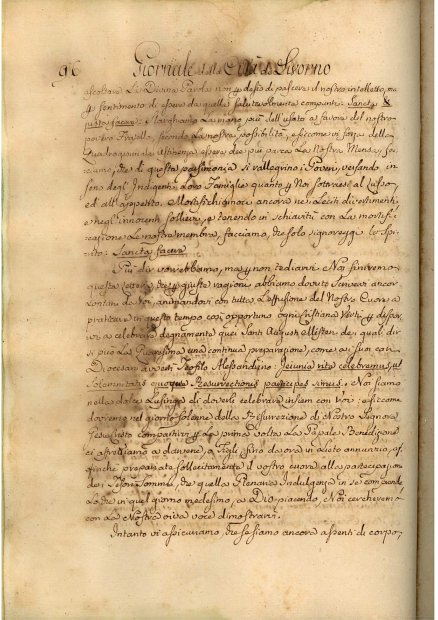 96 Giornale della Città di Livorno
ascoltare la Divina Parola non p desio di pascere il nostro intelletto, ma
p sentimento di essere da quella salutevolmente compunti. Sancta &
justa facere: allarghiamo la mano più dell'usato a favore del nostro
povero Fratello, secondo la nostra possibilità, e siccome vi forza della
Quadragesimale Astinenza essere dee più parca la Nostra Mensa, fac-
ciamo, che di questa parsimonia si rallegrino i Poveri, versando in
seno degl'Indigenti, e loro Famiglie quanto p Noi sotraesi al lusso,
ed all'appetito. Mortifichiamoci ancora nei leciti divertimenti,
e negl'innocenti sollievi, e tenendo in schiavitù con la mortifi-
cazione le nostre membra, facciamo, che solo signoreggi lo Spi-
rito: Sancta facere
Più dir vorrebbamo, ma p non tediarvi Noi finiremo
questa che p giuste ragioni abbiamo dovuto scrivere ancor
lontani da voi, animandovi con tutta l'effusione del Nostro Cuore a
praticare in questo tempo così opportuno ogni Cristiana Virtù, e dispor-
vi a celebrare degnamente quei Santi Augusti Misteri, dei quali dir
si può la Quaresima una continua preparazione, come a' suoi con
Diocesani avvertì Teofilo Alessandrino: Jeiunia rite celebramus, ut
solemnitatis quoque Resurrectionis participes simus. Noi siamo
nella dolce lusinga di doverle celebrare insiem con voi: e siccome
dovremo nel giorno solenne della Resurrezione di Nostro Signore
Gesù Cristo compartirvi p la prima volta la Papale Benedizione
ci affrettiamo a darvene, o Figli, fino da ora il lieto annunzio, af-
finchè prepariate sollecitamente il vostro cuore alla partecipazione
dei Tesori sommi, che quella Plenaria Indulgenza in se comprende
la che in quel giorno medesimo, a Dio piacendo, Noi cercheremo
con la Nostra viva voce dimostrarvi.
Intanto vi assicuriamo, che se siamo ancora assenti di corpo,